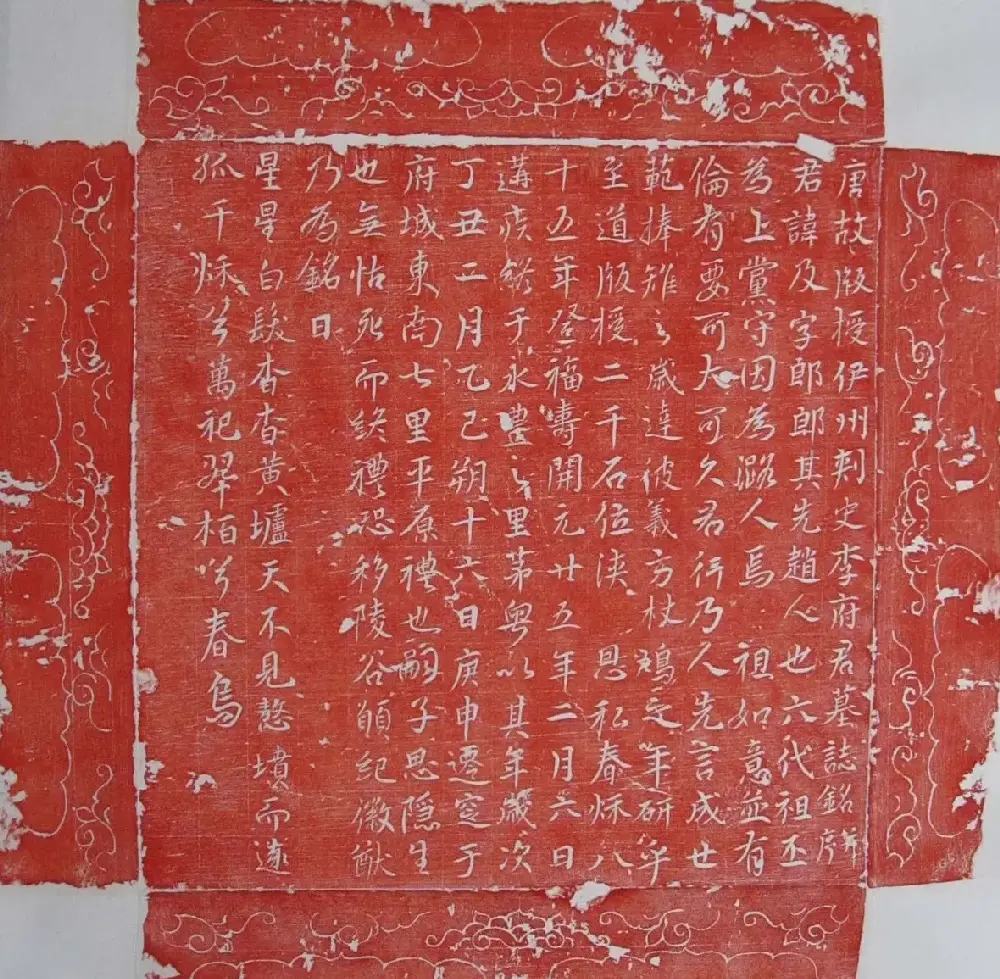 唐故版授伊州刺史李府君墓誌銘并序
君諱及字郎郎其先趙人也六代祖丕
為上黨守因為潞人焉 祖如意並有
倫有要可大可久君行乃人先言成世
範捧雉之歲達彼義方杖鳩之年研乎
至道版授二千石位浹 恩私春秋八
十五年登福壽開元廿五年二月六日
遘疾終于永豐之里第粵以其年歲次
丁丑二月乙巳朔十六日庚申遷窆于
府城東南七里平原禮也嗣子思隱生
也無怙死而終禮恐移陵谷願紀徽猷
乃為銘曰
星星白髮杳杳黃壚天不見憖墳而遠
孤千秋兮萬祀翠柏兮春烏